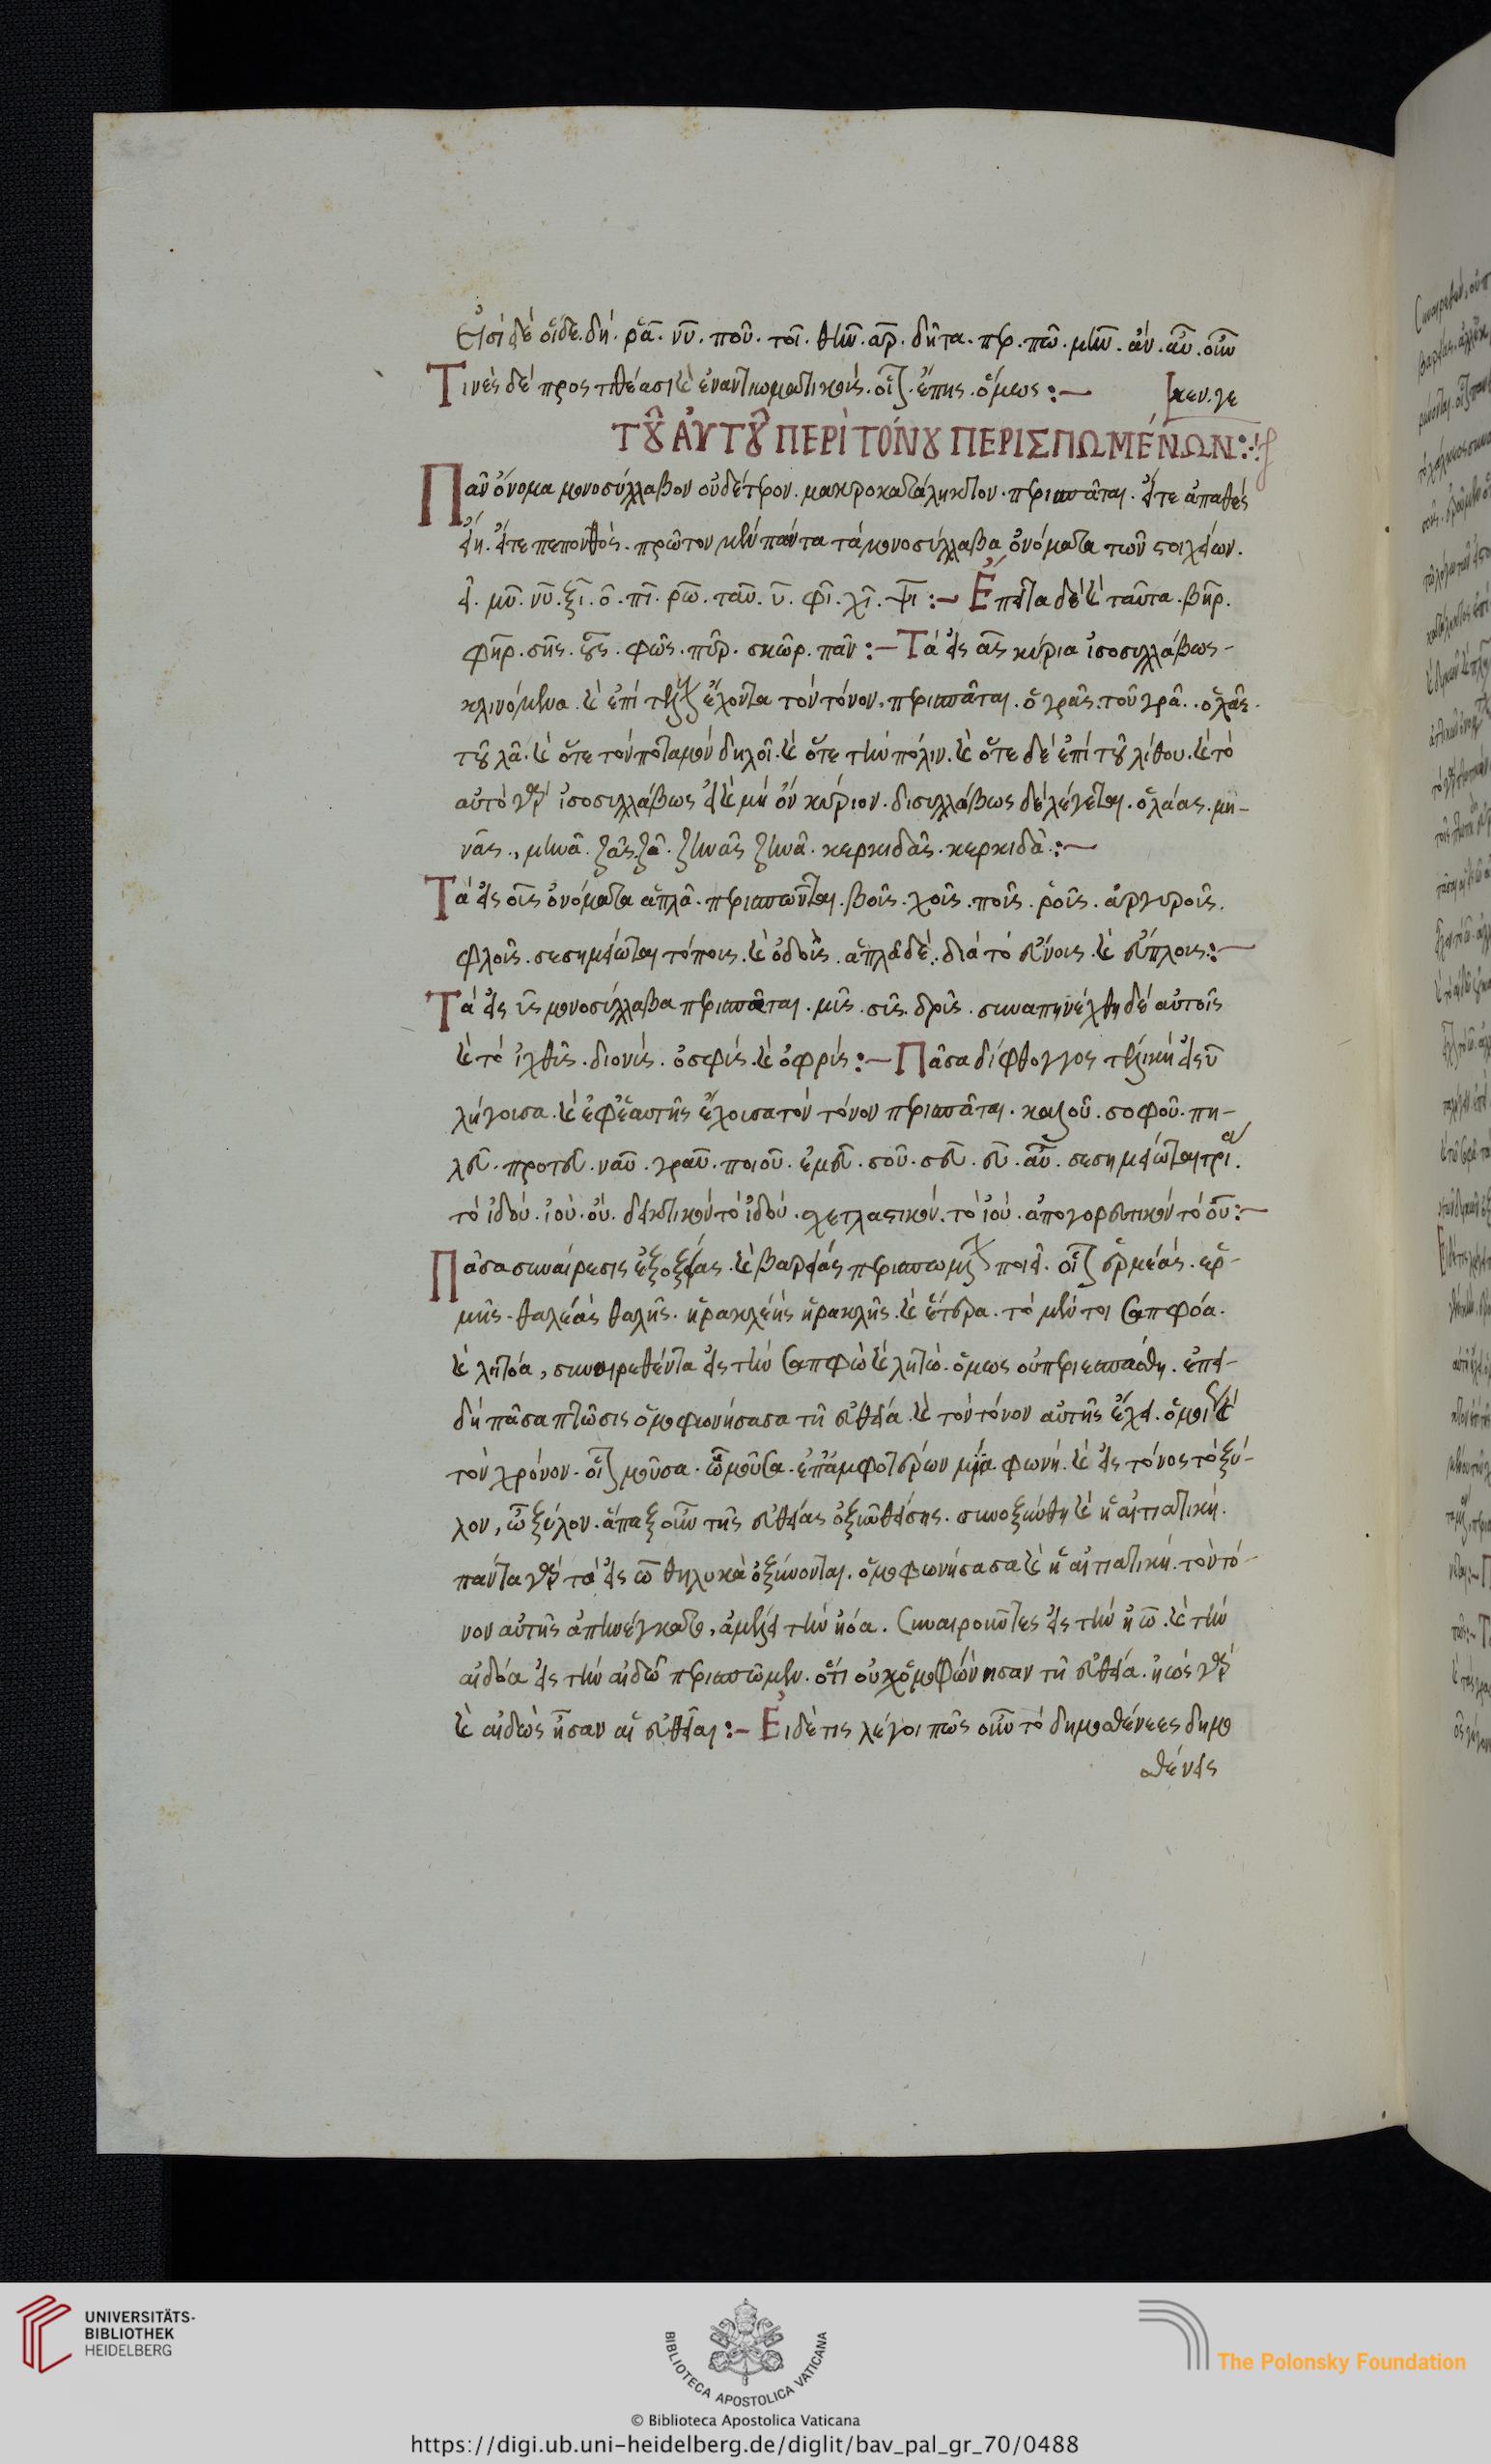 Εἰσὶ δὲ οἵδε. δή. ῥᾶ. νῦ. ποῦ. τοῖ. θὴν. ἂρ. δῆτα. περ. πῶ. μὴν. ἄν. αὖ. οὖν
Τινὲς δὲ προστιθέασι καὶ ἐναντιωματικοὺς. οἷον. ἔμπης. ὅμως :— [κεν. γε
ΤΟΥ̂ ἈΥΤΟΥ̂ ΠΕΡῚ ΤΌΝΟΥ ΠΕΡΙΣΠΩΜΈΝΩΝ :·
Πᾶν ὄνομα μονοσύλλαβον οὐδέτερον. μακροκατάληκτον. περισπᾶται. εἴτε ἀπαθὲς
εἴη. εἴτε πεπονθὸς. πρῶτον μὲν πάντα τὰ μονοσύλλαβα ὀνόματα τῶν στοιχείων.
εἶ. μῦ. νῦ. ξῖ. ὃ. πῖ. ρῶ. ταῦ. ῦ. φῖ. χῖ. ψῖ :— Ἔπειτα δὲ καὶ ταῦτα. βῆρ.
φῆρ. σῆς. οὖς. φῶς. πῦρ. σκῶρ. πᾶν :— Τὰ εἰς ας κύρια ἰσοσυλλάβως
κλινόμενα. καὶ ἐπὶ τέλους ἔχοντα τὸν τόνον. περισπᾶται. ὁ γρᾶς. τοῦ γρᾶ. ὁ λᾶς.
τοῦ λᾶ. καὶ ὅτε τὸν ποταμὸν δηλοῖ. καὶ ὅτε τὴν πόλιν. καὶ ὅτε δὲ ἐπὶ τοῦ λίθου. καὶ τὸ
αὐτὸ γὰρ ἰσοσυλλάβως εἰ καὶ μὴ ὂν κύριον. δισυλλάβως δὲ λέγεται. ὁ λάας. μη-
νᾶς., μηνᾶ. ζᾶς. ζᾶ. ζηνᾶς ζηνᾶ. κερκιδᾶς. κερκιδᾶ :—
Τὰ εἰς οῦς ὀνόματα ἁπλᾶ. περισπῶνται. βοῦς. χοῦς. ποῦς. ῥοῦς. ἀργυροῦς.
φλοῦς. σεσημείωται τόπους. καὶ ὀδοὺς. ἁπλᾶ δὲ. διὰ τὸ εὔνους. καὶ εὔπλους :—
Τὰ εἰς ῦς μονοσύλλαβα περισπᾶται. μῦς. σῦς. δρῦς. συναπηνέχθη δὲ αὐτοῖς
καὶ τὸ ἰχθῦς. διονῦς. ὀσφὺς. καὶ ὀφρὺς :— Πᾶσα δίφθογγος τελικὴ εἰς ῦ
λήγουσα. καὶ ἐφ' ἑαυτῆς ἔχουσα τὸν τόνον περισπᾶται. καλοῦ. σοφοῦ. πη-
λεῦ. πρωτεῦ. ναῦ. γραῦ. ποιοῦ. ἐμεῦ. σοῦ. σεῦ. εὖ. αὖ. σεσημείωται τρία.
τὸ ἰδού. ἰού. οὐ. δεικτικὸν τὸ ἰδού. σχετλιαστικόν. τὸ ἰού. ἀπαγορευτικὸν τὸ οὔ :—
Πᾶσα συναίρεσις ἐξ ὀξείας. καὶ βαρείας περισπωμένην ποιεῖ. οἷον ἑρμέας. ἑρ-
μῆς. θαλέας θαλῆς. ἡρακλέης ἡρακλῆς. καὶ ἕτερα. τὸ μέντοι σαπφόα.
καὶ λητόα, συναιρεθέντα εἰς τὴν σαπφὼ καὶ λητώ. ὅμως οὐ περιεσπάσθη. ἐπει-
δὴ πᾶσα πτῶσις ὁμοφωνήσασα τῇ εὐθεία. καὶ τὸν τόνον αὐτῆς ἔχει. ὁμοίως καὶ
τὸν χρόνον. οἷον μοῦσα. ὦ μοῦσα. ἐπ' ἀμφοτέρων μία φωνή. καὶ εἷς τόνος τὸ ξύ-
λον, ὦ ξύλον. ἅπαξ οὖν τῆς εὐθείας ὀξυνθείσης. συνωξύνθη καὶ ἡ αἰτιατική.
πάντα γὰρ τὰ εἰς ω θηλυκὰ ὀξύνονται. ὁμοφωνήσασα καὶ ἡ αἰτιατική. τὸν τό-
νον αὐτῆς ἀπηνέγκατο, ἀμέλει τὴν ἠόα. συναιροῦντες εἰς τὴν ἠῶ. καὶ τὴν
αἰδόα εἰς τὴν αἰδῶ περισπῶμεν. ὅτι οὐχ ὁμοφώνησαν τῇ εὐθεία. ἠὼς γὰρ
καὶ αἰδὼς ἦσαν αἱ εὐθεῖαι :— Εἰ δέ τις λέγοι πῶς οὖν τὸ δημοσθένεες δημο
σθένεις
UNIVERSITÄTS-
BIBLIOTHEK
HEIDELBERG
BIBLIOTECA APOSTOLICA VATICANA
The Polonsky Foundation
© Biblioteca Apostolica Vaticana
https://digi.ub.uni-heidelberg.de/diglit/bav_pal_gr_70/0488